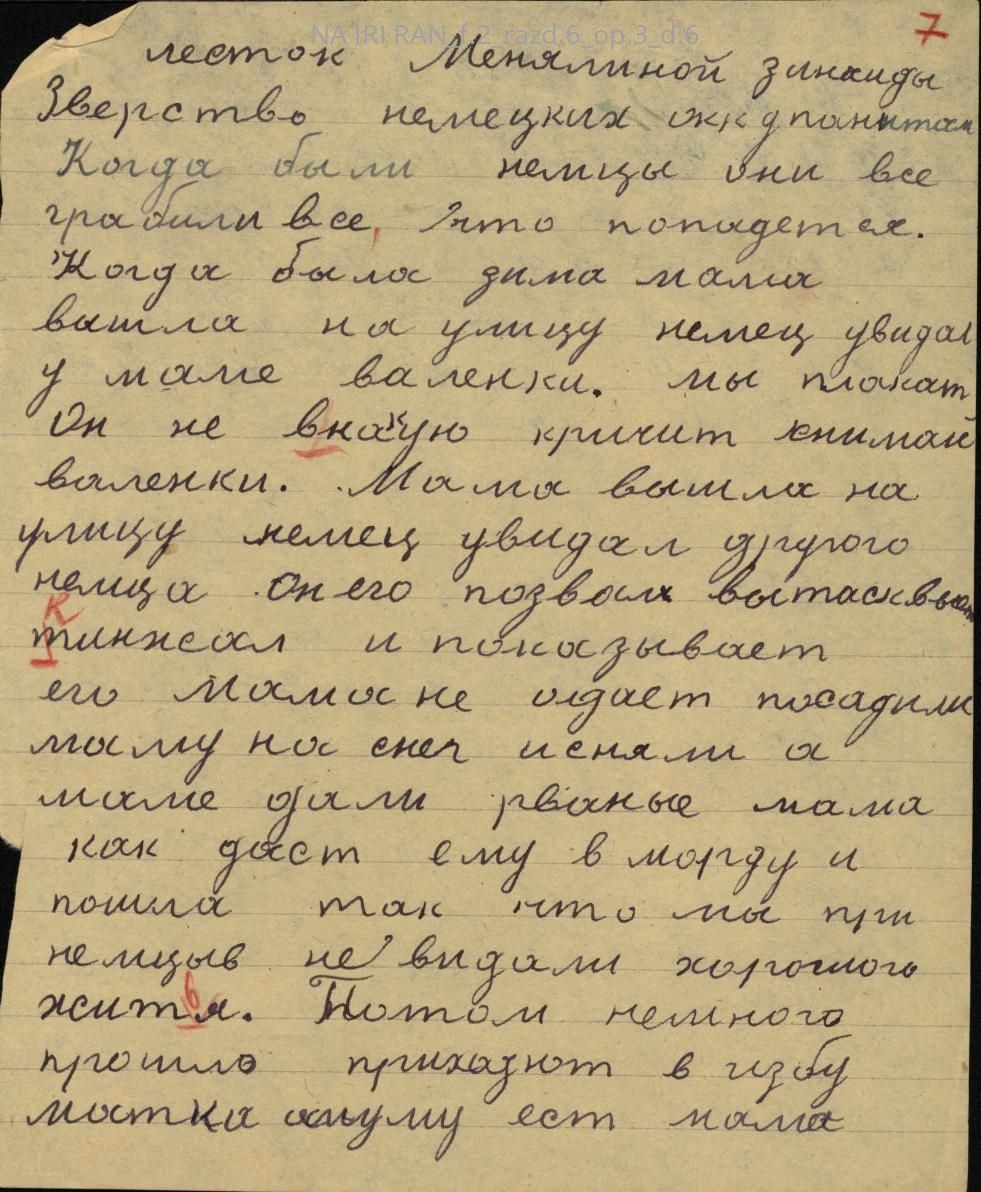 NA IRI RAN_f.2_razd.6_op.3_d.6
7
лесток Менялиной зинаиды
Зверство немецких
Когда были немцы они все
грабили все, что попадется.
Когда была зима мама
вышла на улицу немец увидал
у маме валенки. мы плакат
Он не в какую кричит снимай
валенки. Мама вышла на
улицу немец увидал другого
немца Он его позвал
к
тинжал и показывает
его Мама не одает посадили
маму на снег и сняли а
маме дали рваные мама
как даст ему в морду и
пошла так что мы при
немцыв не видали хорошого
ь
житя. Потом немного
прошло приходют в избу
матка ест мама